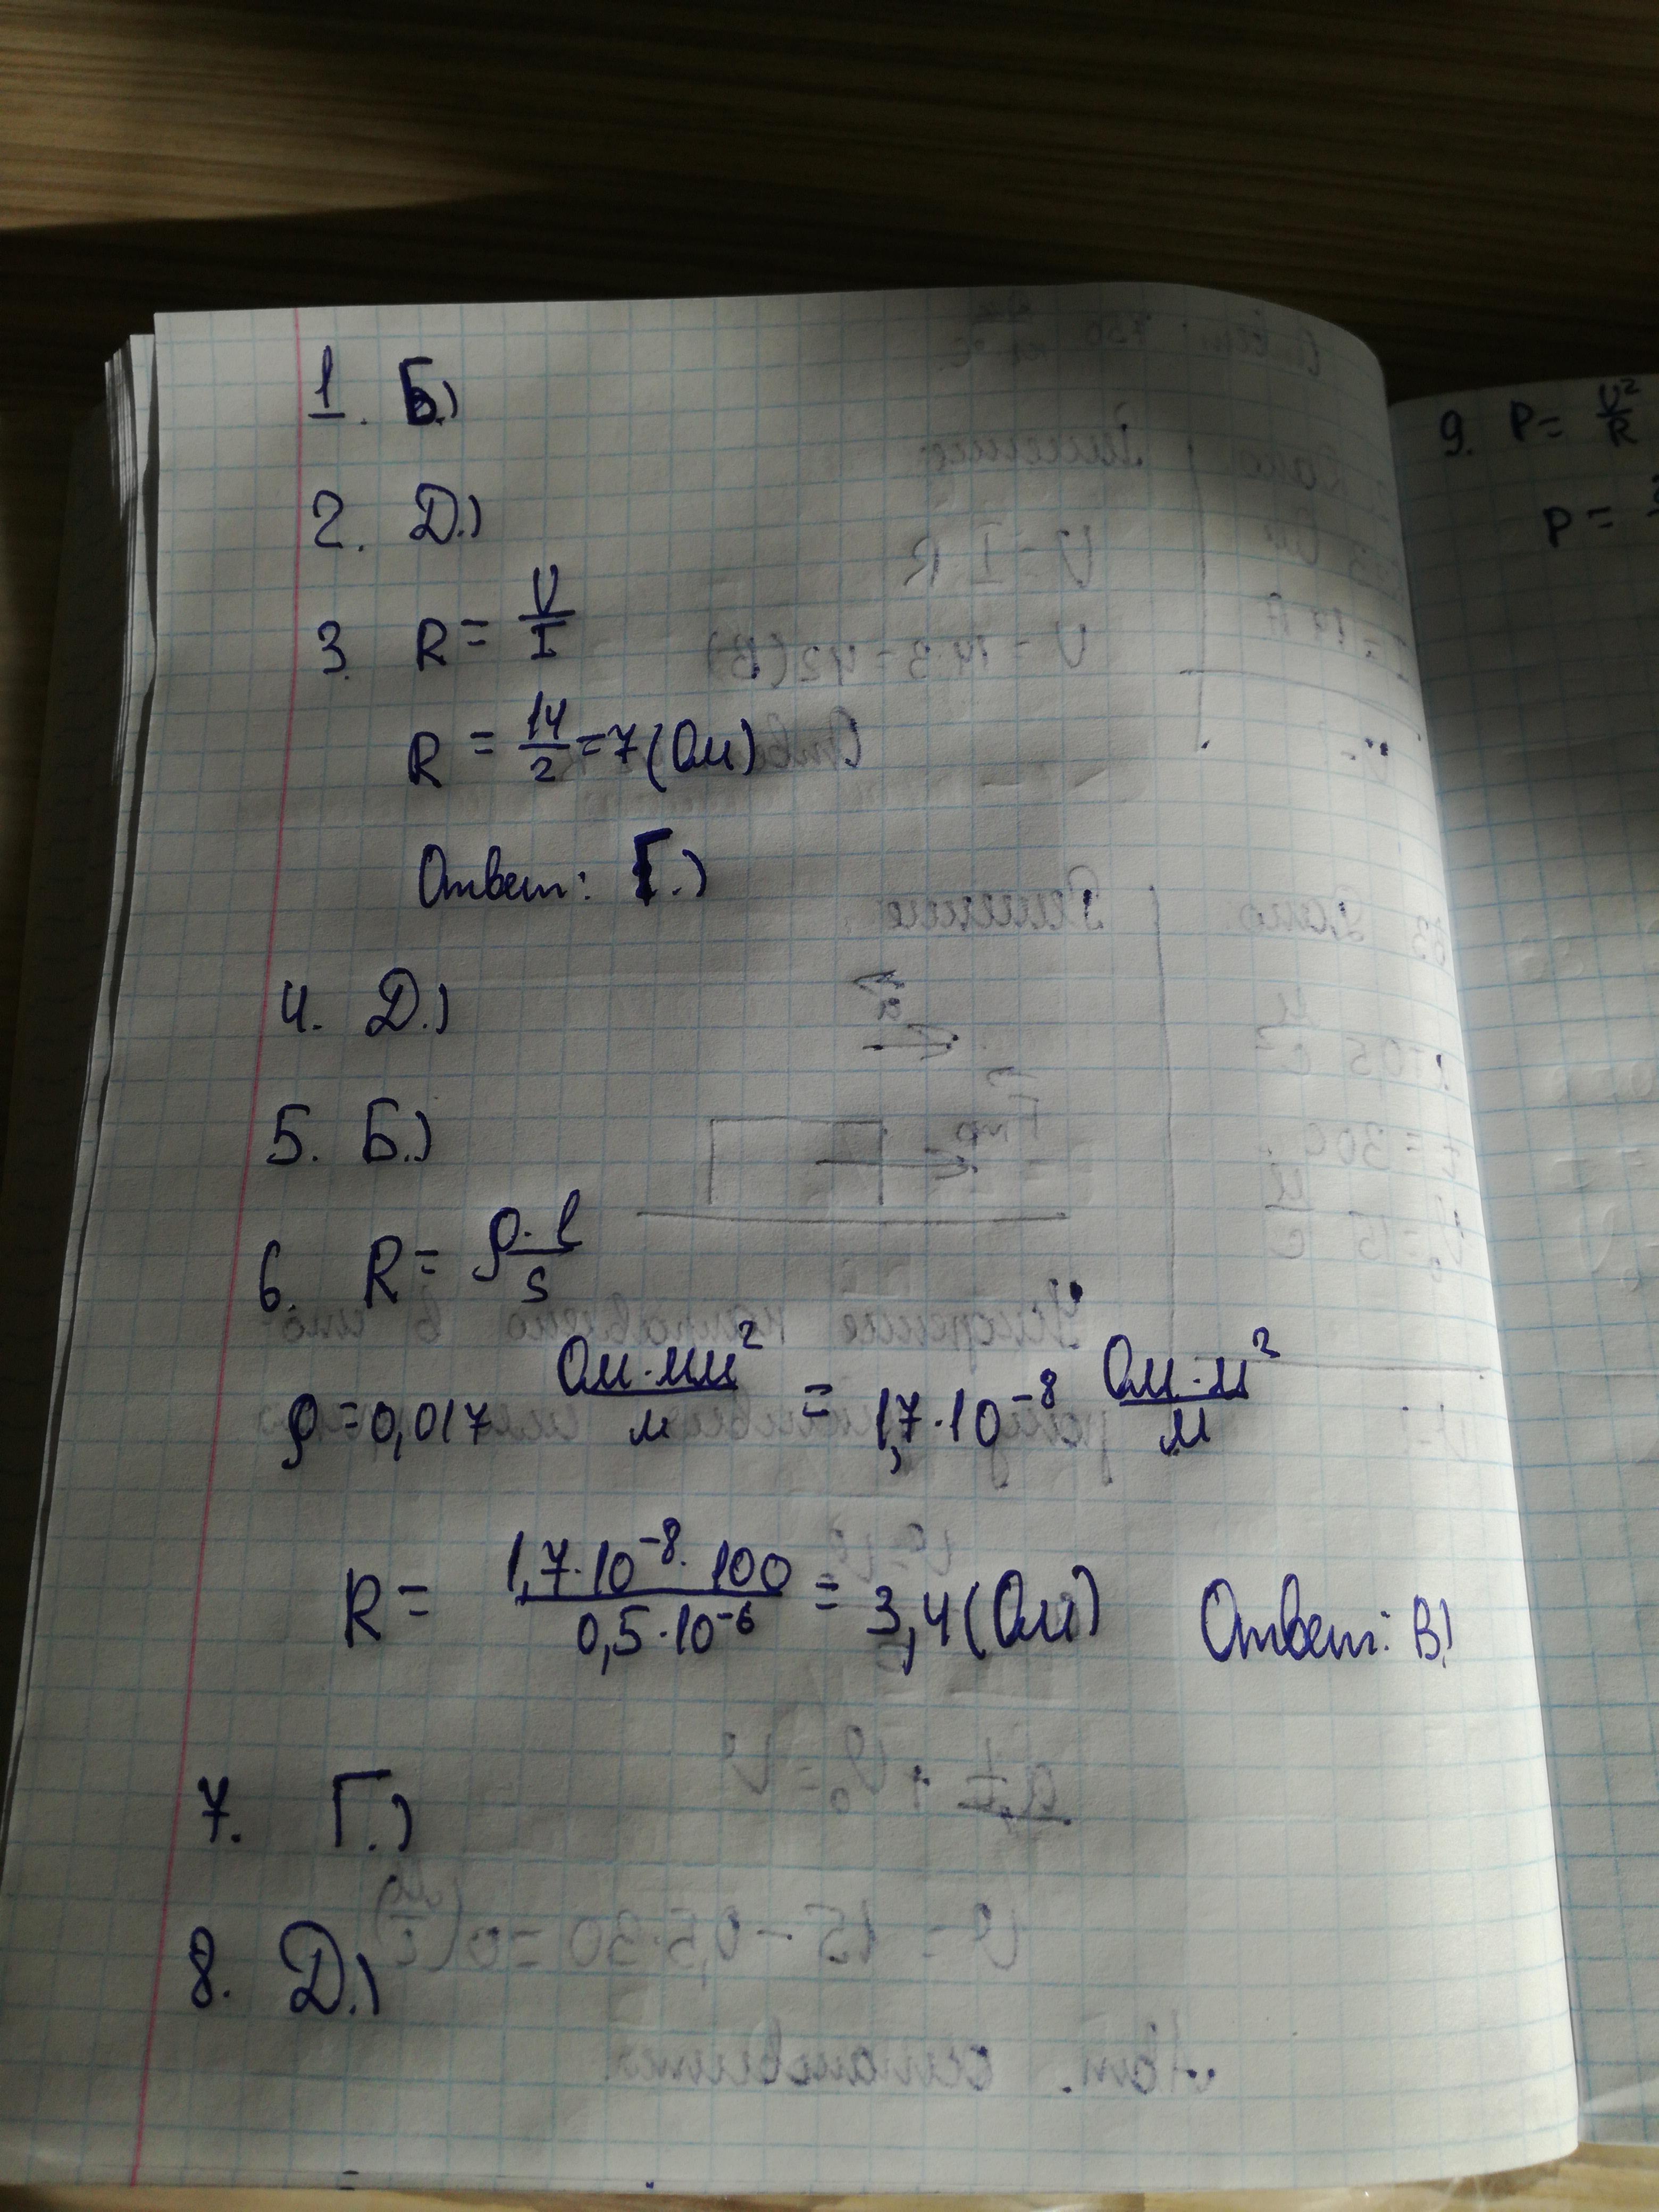 1. Б.)
2. Д.)
3. R = U/I
R = 14/2 = 7 (Ом)
Ответ: Г.)
4. Д.)
5. Б.)
6. R = ρ·l/S
ρ = 0,017 Ом·мм²/м = 1,7·10⁻⁸ Ом·м²/м
R = 1,7·10⁻⁸·100/0,5·10⁻⁶ = 3,4 (Ом) Ответ: В)
7. Г.)
8. Д.)
9. P = U²/R
P =